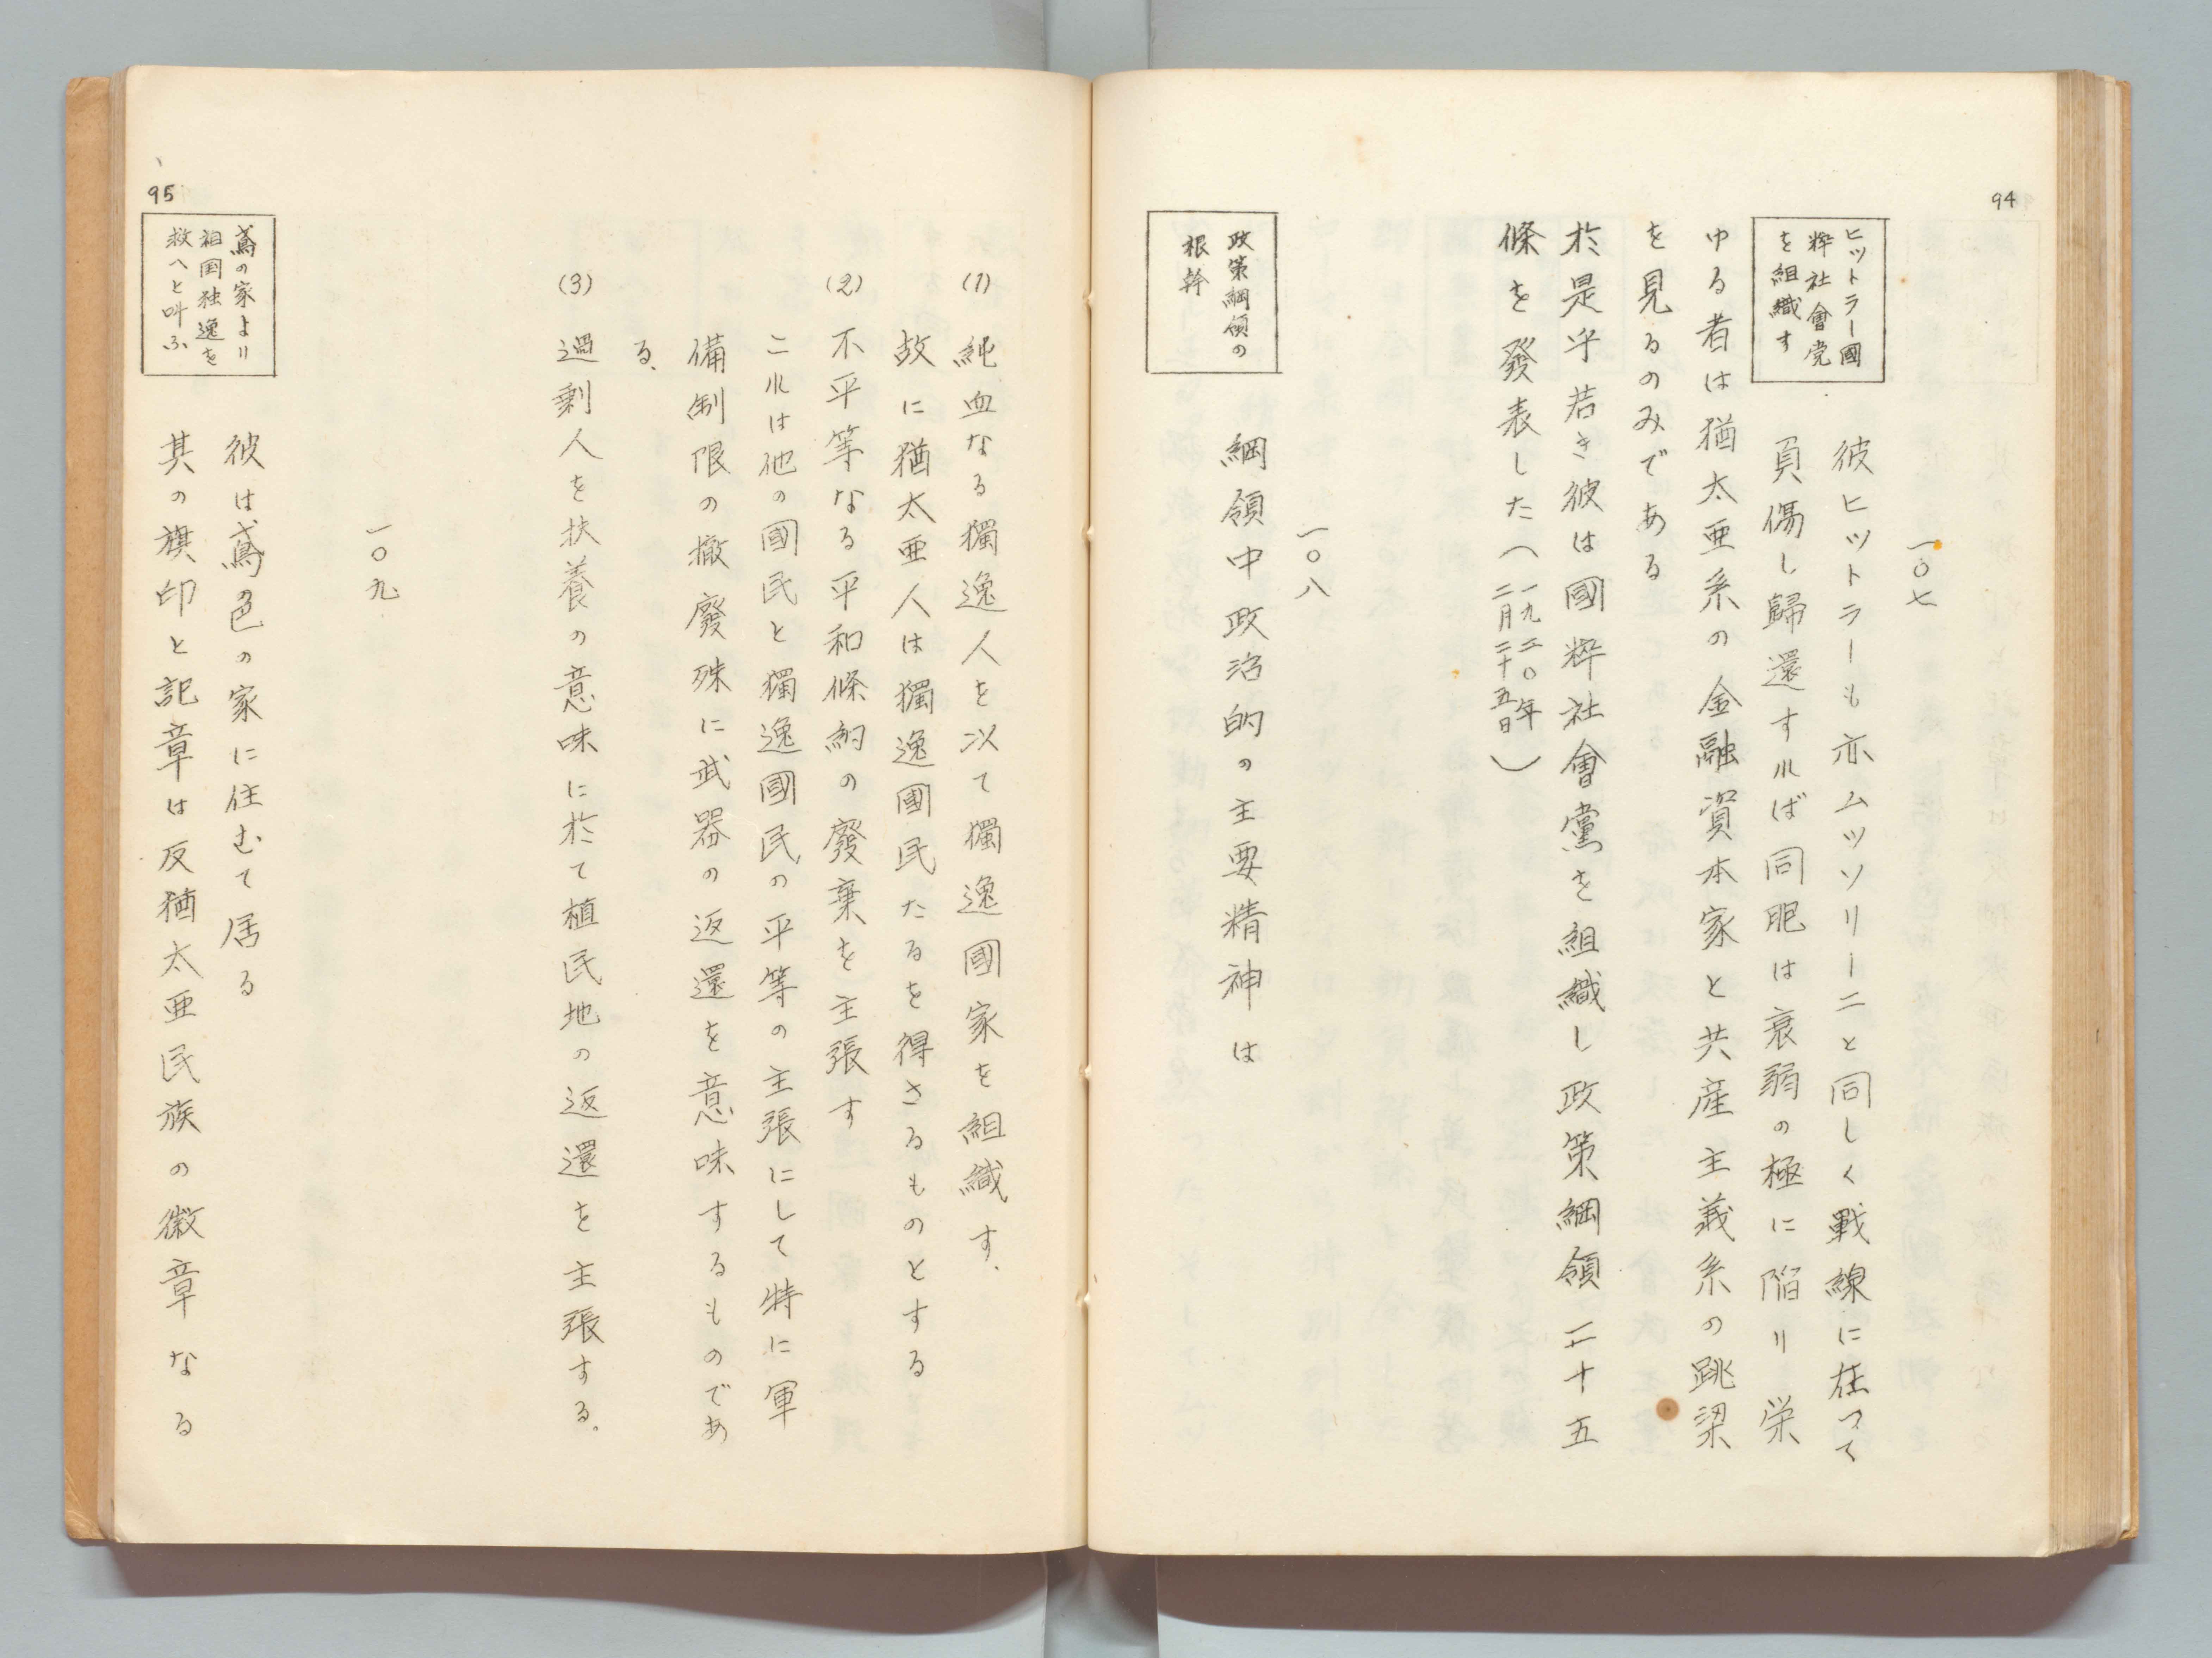 94
一〇七
ヒットラー國
粹社會党
を組織す
彼ヒットラーも亦ムッソリーニと同しく戰線に在つて
負傷し歸還すれば同胞は衰弱の極に陷り栄
ゆる者は猶太亜系の金融資本家と共産主義系の跳梁
を見るのみである
於是乎若き彼は國粹社會黨を組織し政策綱領二十五
條を發表した(一九二〇年
二月二十五日)
一〇八
政策綱領の
根幹
綱領中政治的の主要精神は
(1) 純血なる獨逸人を以て獨逸國家を組織す、
故に猶太亜人は獨逸國民たるを得さるものとする
(2) 不平等なる平和條約の廢棄を主張す
これは他の國民と獨逸國民の平等の主張にして特に軍
備制限の撤廢殊に武器の返還を意味するものであ
る、
(3) 過剰人を扶養の意味に於て植民地の返還を主張する。
一〇九
95
鳶の家より
祖国独逸を
救へと叫ふ
彼は鳶色の家に住むて居る
其の旗印と記章は反猶太亜民族の徽章なる